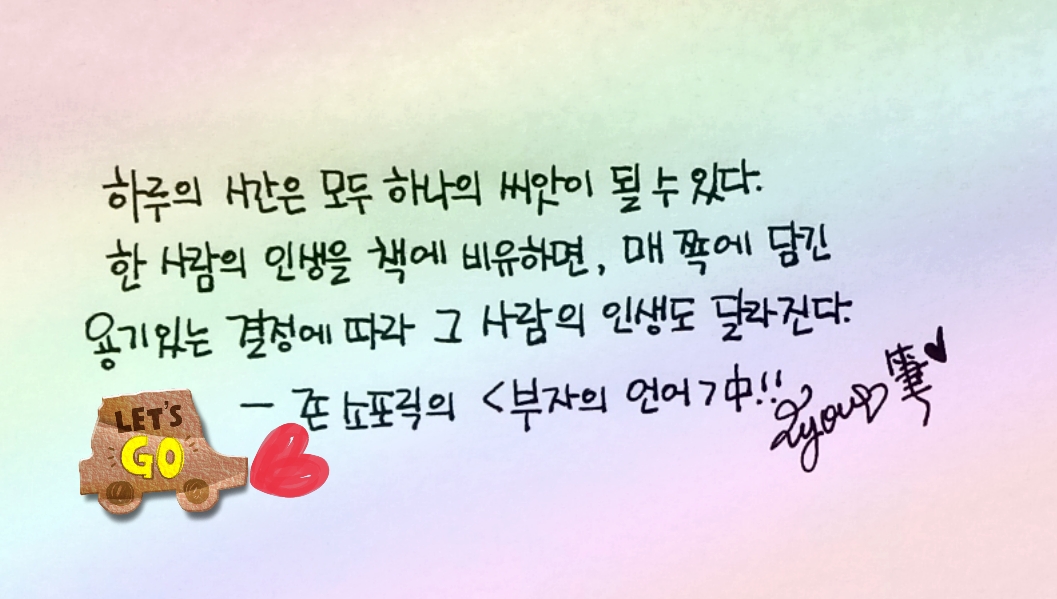 하루의 시간은 모두 하나의 씨앗이 될 수 있다.
한 사람의 인생을 책에 비유하면, 매 쪽에 담긴
용기있는 결정에 따라 그 사람의 인생도 달라진다.
- 존 소포릭의 <부자의 언어>中!!
LET'S
GO